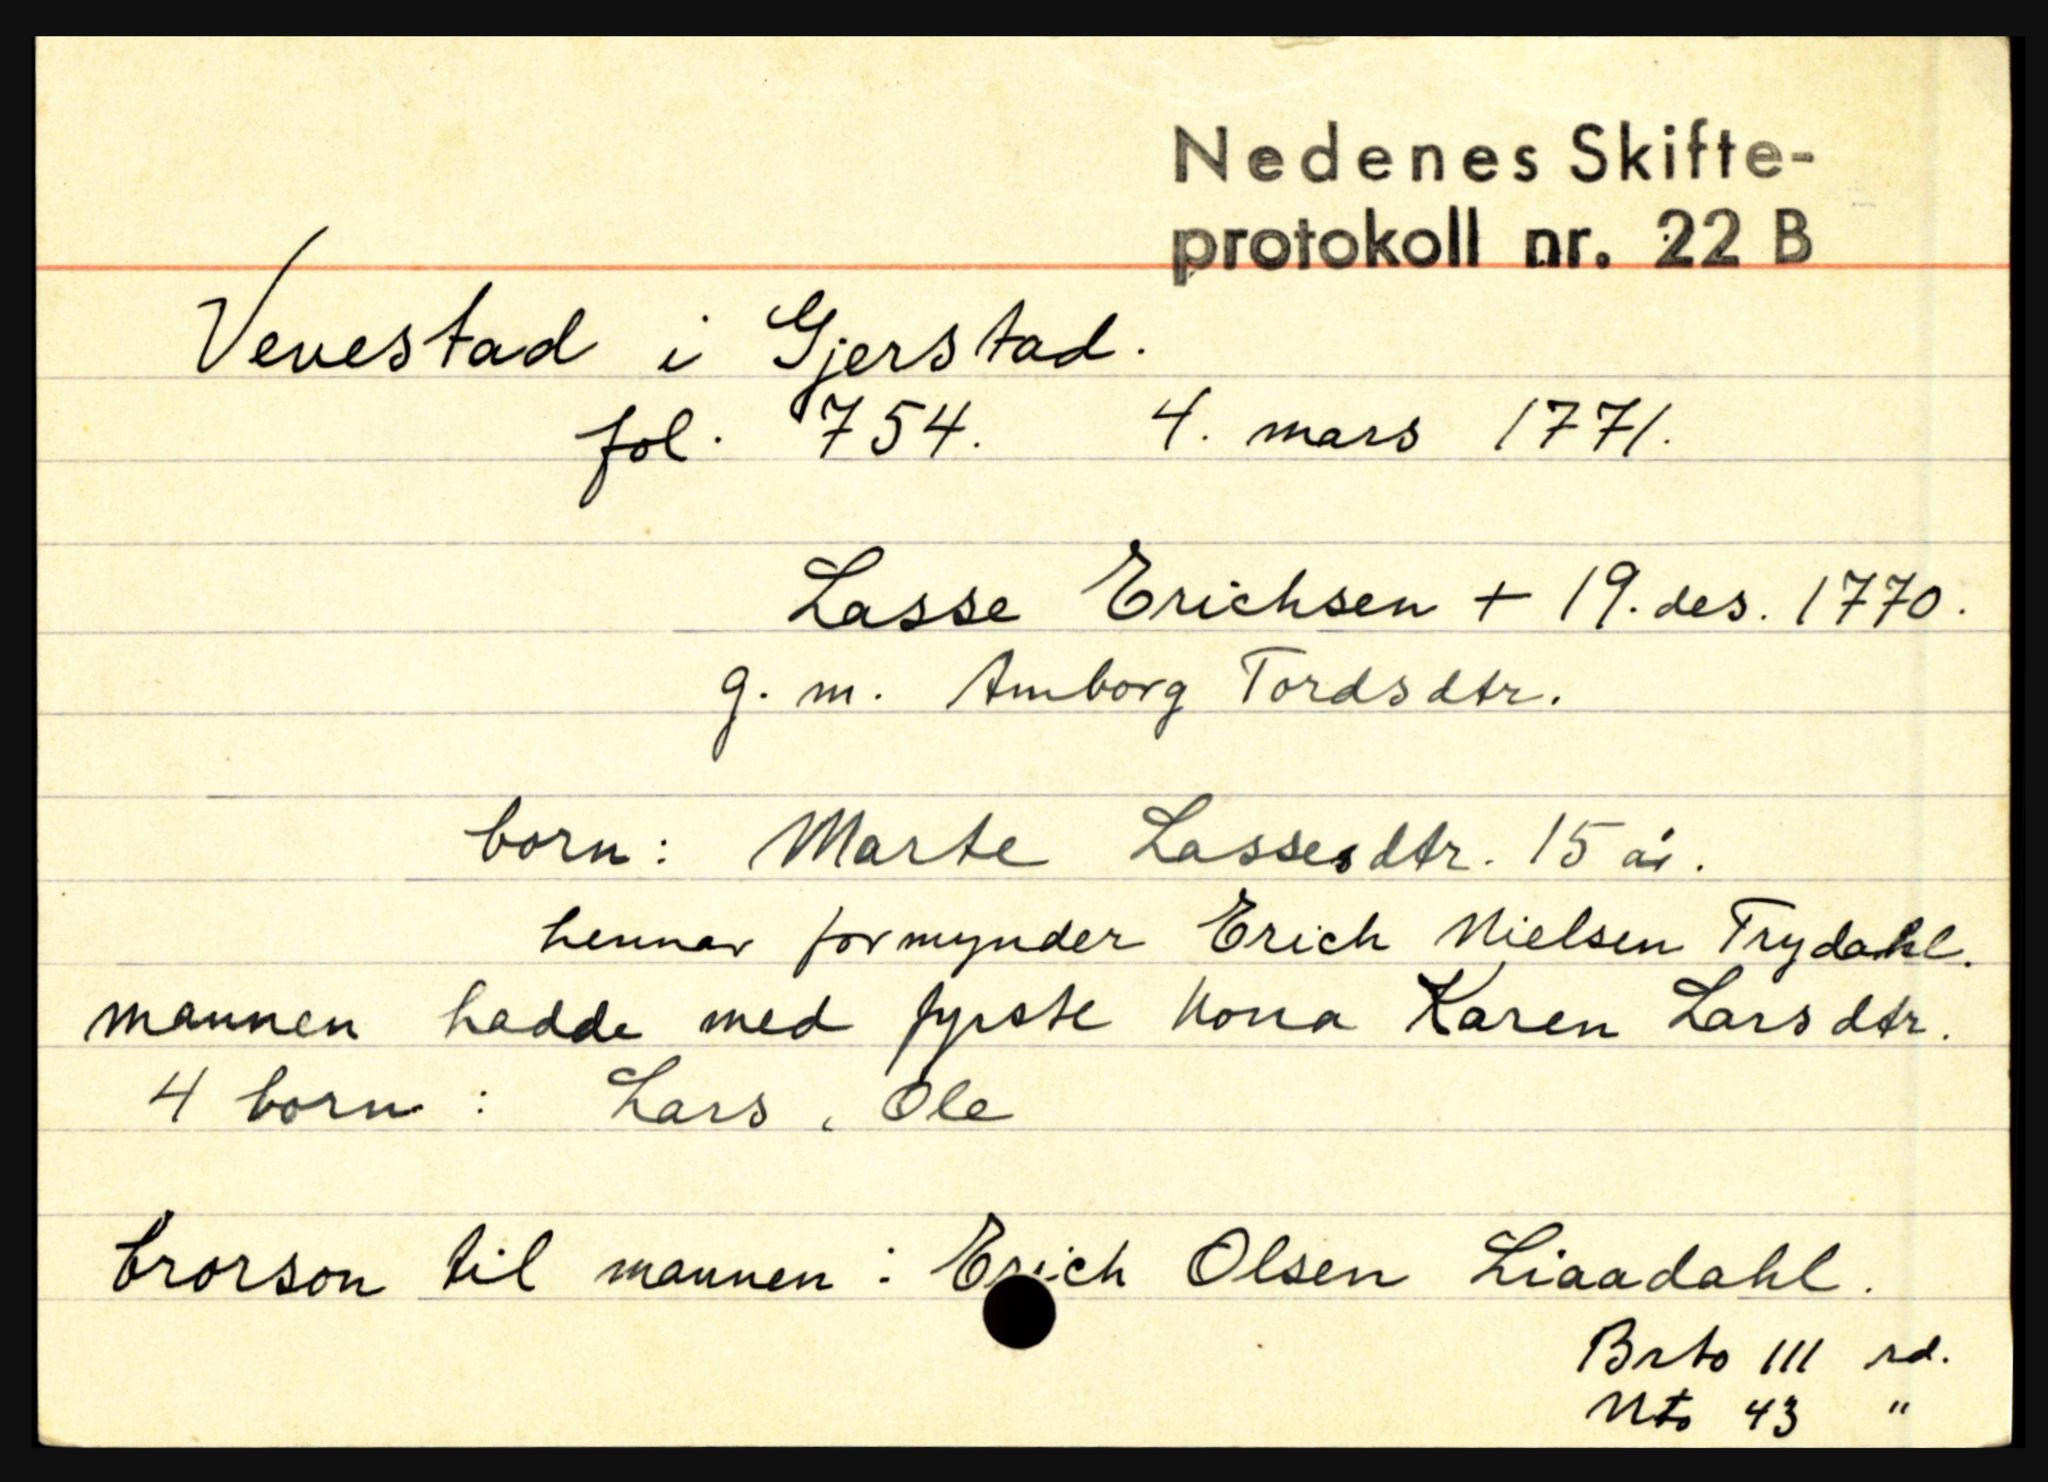 Nedenes Skifte-
protokoll nr. 22 B
Vevestad i Gjerstad.
fol. 754. 4. mars 1771.
Lasse Erichsen + 19. des. 1770.
g. m. Amborg Tordsdtr.
born: Marte Lassesdtr. 15 år.
hennar formynder Erich Nielsen Trydahl.
mannen hadde med fyrste kona Karen Larsdtr.
4 born : Lars, Ole
brorson til mannen : Erich Olsen Liaadahl.
Brto 111 rd.
Nto 43 "